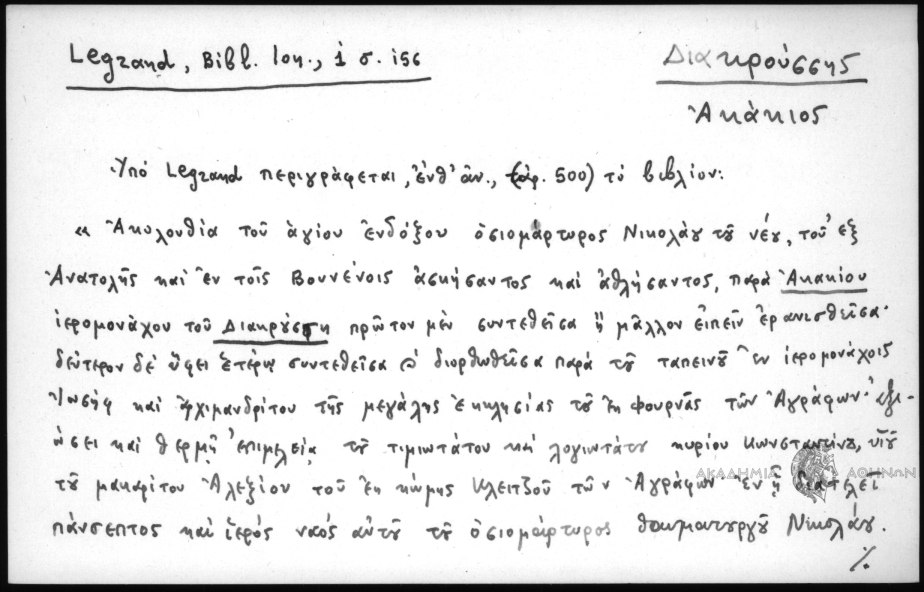 Legrand, Bibl. Ion., 1 σ. 156
Διακρούσσης
Ἀκάκιος
Ὑπό Legrand περιγράφεται, ἔνθ' ἀν., (ἀρ. 500) τό βιβλίον:
« Ἀκολουθία τοῦ ἁγίου ἐνδόξου ὁσιομάρτυρος Νικολάου τοῦ νέου, τοῦ ἐξ
Ἀνατολῆς καί ἐν τοῖς Βουνένοις ἀσκήσαντος καί ἀθλήσαντος, παρά Ἀκακίου
ἱερομονάχου τοῦ Διακρούση πρῶτον μέν συντεθεῖσα ἤ μᾶλλον εἰπεῖν ἐρανισθεῖσα·
δεύτερον δέ ὕφει ἑτέρῳ συντεθεῖσα καί διορθωθεῖσα παρά τοῦ ταπεινοῦ ἐν ἱερομονάχοις
Ἰωσήφ καί ἀρχιμανδρίτου τῆς μεγάλης ἐκκλησίας τοῦ ἐκ Φουρνᾶς τῶν Ἀγράφων· ἀξι-
ώσει καί θερμῇ ἐπιμελείᾳ τοῦ τιμιωτάτου καί λογιωτάτου κυρίου Κωνσταντίνου, υἱοῦ
τοῦ μακαρίτου Ἀλεξίου τοῦ ἐκ κώμης Κλειτζοῦ τῶν Ἀγράφων ἐν ᾗ διατελεῖ
πάνσεπτος καί ἱερός ναός αὐτοῦ τοῦ ὁσιομάρτυρος θαυματουργοῦ Νικολάου.
ΑΚΑΔΗΜΙΑ ΑΘΗΝΩΝ
./.